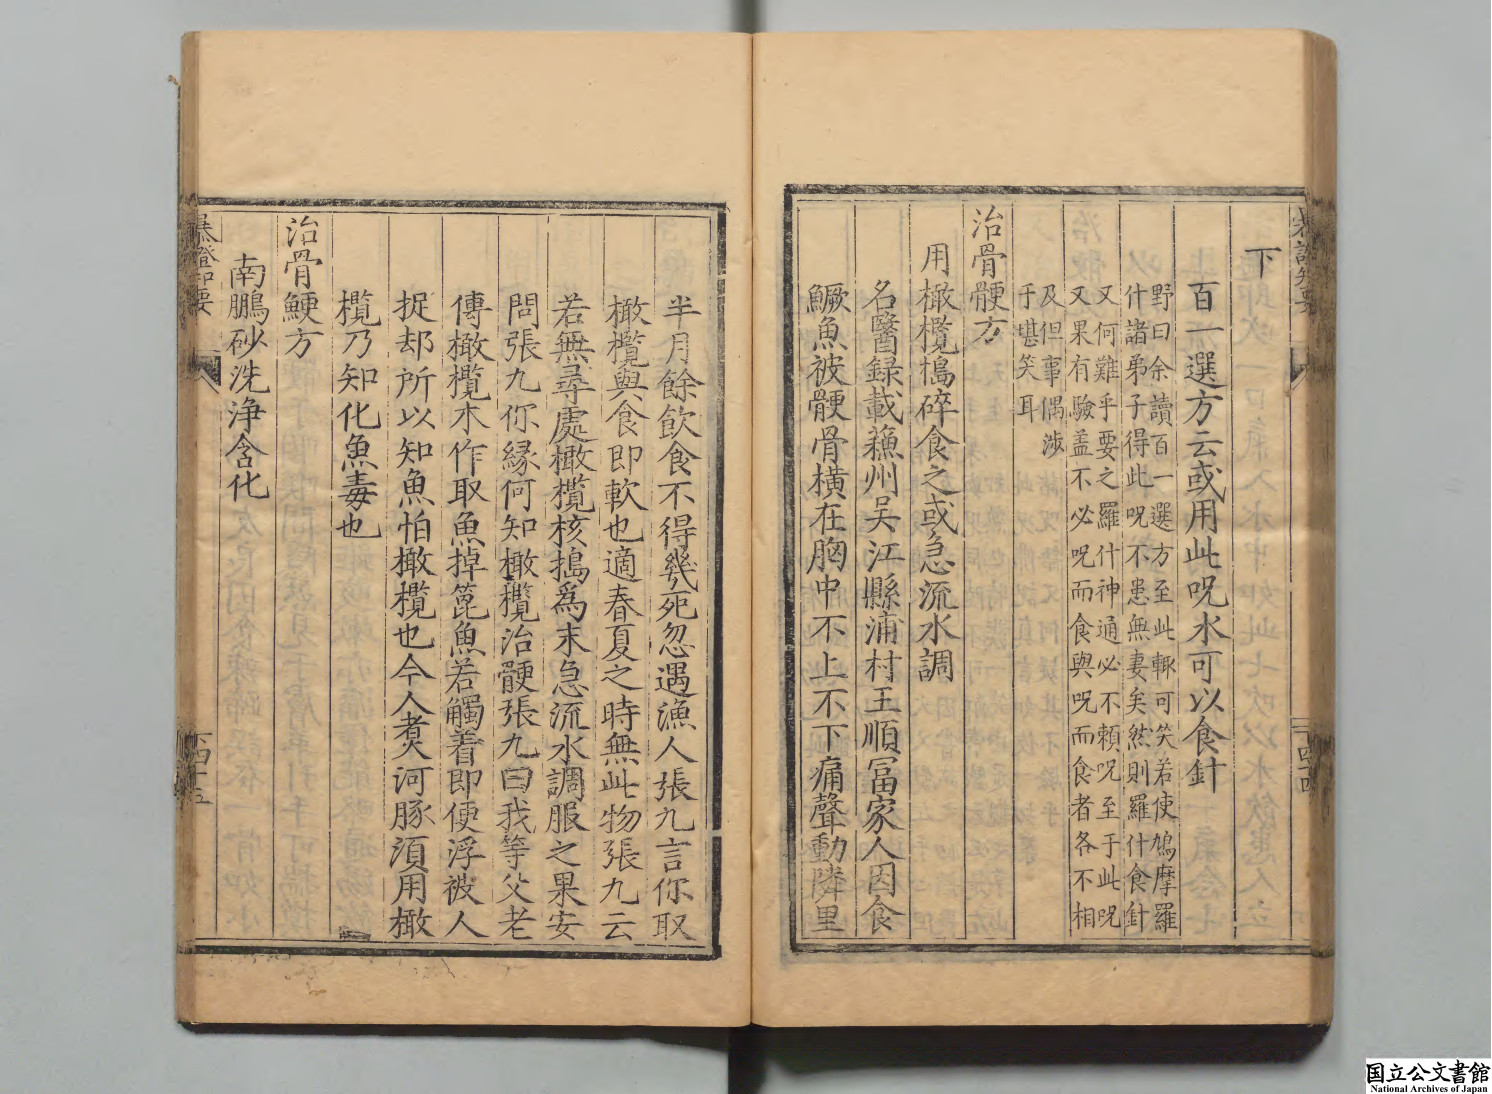 下
百一選方云或用此呪水可以食針
野曰余讀百一選方至此輙可笑若使鳩摩羅
什諸弟子得此呪不患無妻矣然則羅什食針
又何難乎要之羅什神通必不頼呪至于此呪
又果有驗盖不必呪而食與呪而食者各不相
及但事偶涉
于堪笑耳
治骨骾方
用橄欖搗碎食之或急流水調
名醫録載蘓州吴江縣浦村王順冨家人因食
鱖魚被骾骨横在胸中不上不下痛聲動隣里
半月餘飲食不得幾死忽遇漁人張九言你取
橄欖與食即軟也適春夏之時無此物張九云
若無尋處橄欖核搗為末急流水調服之果安
問張九你縁何知橄欖治骾張九曰我等父老
傳橄欖木作取魚掉篦魚若觸着即便浮被人
捉却所以知魚怕橄欖也今人煑河豚湏用橄
欖乃知化魚毒也
治骨鯁方
南鵬砂洗浄含化
下四十五
国立公文書館
National Archives of Japan